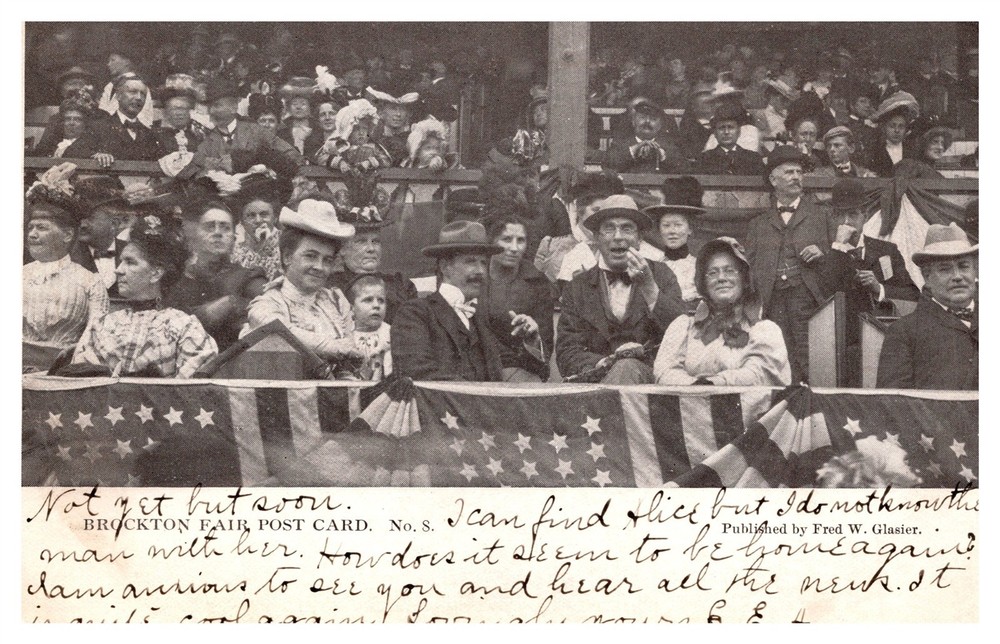 Not yet but soon. I can find Alice but I do not know the
BROCKTON FAIR POST CARD. No. 8. Published by Fred W. Glasier.
man with her. How does it seem to be home again?
I am anxious to see you and hear all the news. It
is quite cool again. Lovingly yours E. E. A